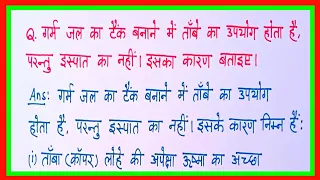 Q. गर्म जल का टैंक बनाने में ताँबे का उपयोग होता है,
परन्तु इस्पात का नहीं। इसका कारण बताइए।
Ans: गर्म जल का टैंक बनाने में ताँबे का उपयोग
होता है, परन्तु इस्पात का नहीं। इसके कारण निम्न हैं:
(i) ताँबा (कॉपर) लोहे की अपेक्षा ऊष्मा का अच्छा